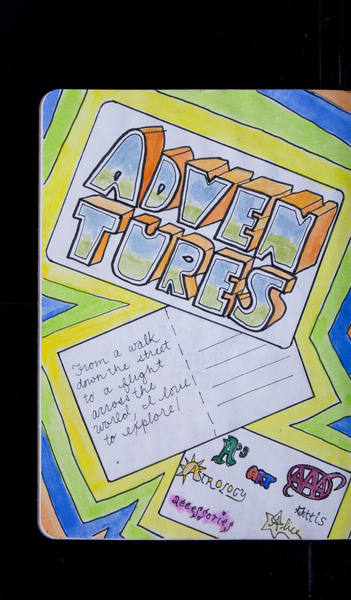 ADVEN
TURES
From a walk
down the street
to a flight
across the
world, I love
to explore!
A's
ART
AAA
Astrology
accessories
Attis
Alice